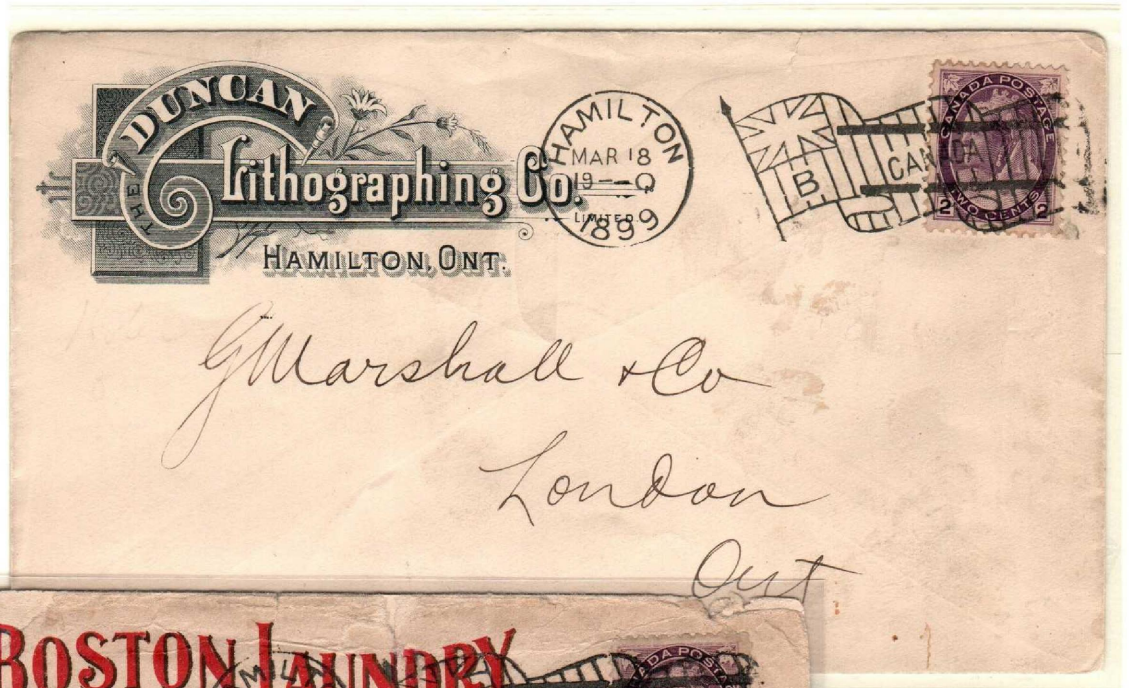 THE DUNCAN
Lithographing Co.
LIMITED
HAMILTON, ONT.
HAMILTON
MAR 18
1899
B
CANADA
CANADA POSTAGE
2 TWO CENTS 2
G Marshall & Co
London
Ont
BOSTON LAUNDRY